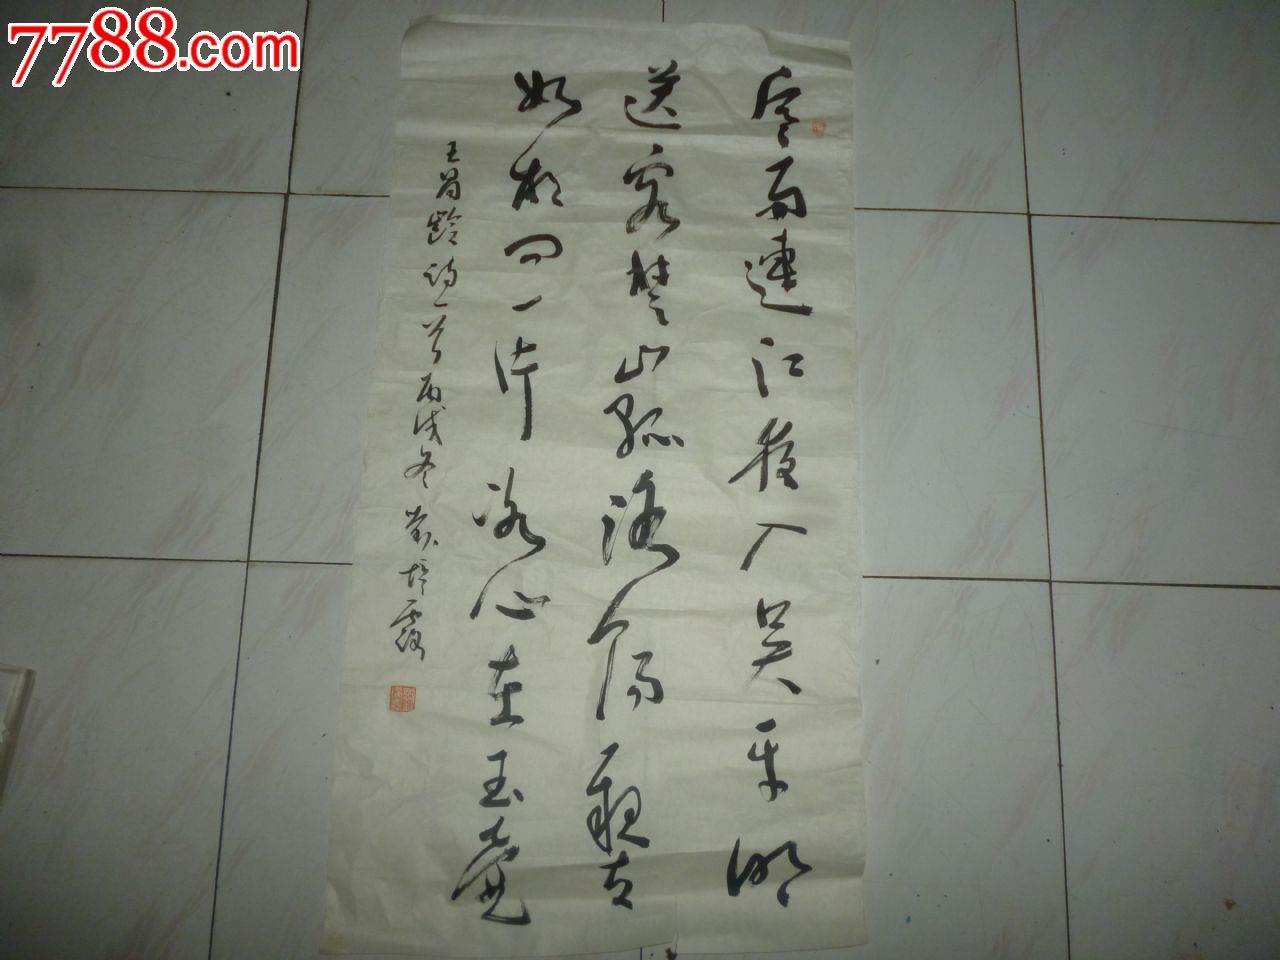 7788.com
寒雨連江夜入吴平明
送客楚山孤洛陽親友
如相问一片冰心在玉壺
王昌齡诗一首丙戌冬